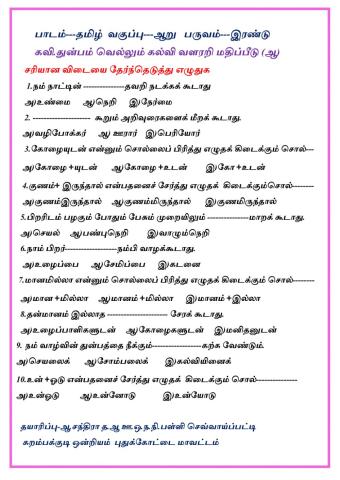 பாடம்---தமிழ் வகுப்பு---ஆறு பருவம்---இரண்டு
கவி.துன்பம் வெல்லும் கல்வி வளரறி மதிப்பீடு (ஆ)
சரியான விடையை தேர்ந்தெடுத்து எழுதுக
1.நம் நாட்டின் ---------------தவறி நடக்கக் கூடாது
அ)உண்மை ஆ)நெறி இ)நேர்மை
2. -------------------- கூறும் அறிவுரைகளைக் மீறக் கூடாது.
அ)வழிபோக்கர் ஆ ஊரார் இ)பெரியோர்
3.கோழையுடன் என்னும் சொல்லைப் பிரித்து எழுதக் கிடைக்கும் சொல்---
அ)கோழை +யுடன் ஆ)கோழை +உடன் இ)கோ +உடன்
4.குணம்+ இருந்தால் என்பதனைச் சேர்த்து எழுதக் கிடைக்கும்சொல்--------
அ)குணம்இருந்தால் ஆ)குணம்மிருந்தால் இ)குணமிருந்தால்
5.பிறரிடம் பழகும் போதும் பேசும் முறையிலும் ---------------மாறக் கூடாது.
அ)செயல் ஆ)பண்புநெறி இ)வாழும்நெறி
6.நாம் பிறர்-------------------நம்பி வாழக்கூடாது.
அ)உழைப்பை ஆ)சேமிப்பை இ)கடனை
7.மானமில்லா என்னும் சொல்லைப் பிரித்து எழுதக் கிடைக்கும் சொல்--------
அ)மான +மில்லா ஆ)மானம் +மில்லா இ)மானம் +இல்லா
8.தன்மானம் இல்லாத ---------------------- சேரக் கூடாது.
அ)உழைப்பாளிகளுடன் ஆ)கோழைகளுடன் இ)மனிதனுடன்
9. நம் வாழ்வின் துன்பத்தை நீக்கும்------------------கற்க வேண்டும்.
அ)செயலைக் ஆ)சோம்பலைக் இ)கல்வியினைக்
10.உன் +ஓடு என்பதனைச் சேர்த்து எழுதக் கிடைக்கும் சொல்---------------
அ)உன்ஓடு ஆ)உன்னோடு இ)உன்யோடு
தயாரிப்பு-ஆ.சந்திரா த.ஆ ஊ.ஒ.ந.நி.பள்ளி செவ்வாய்ப்பட்டி
கறம்பக்குடி ஒன்றியம் புதுக்கோட்டை மாவட்டம்